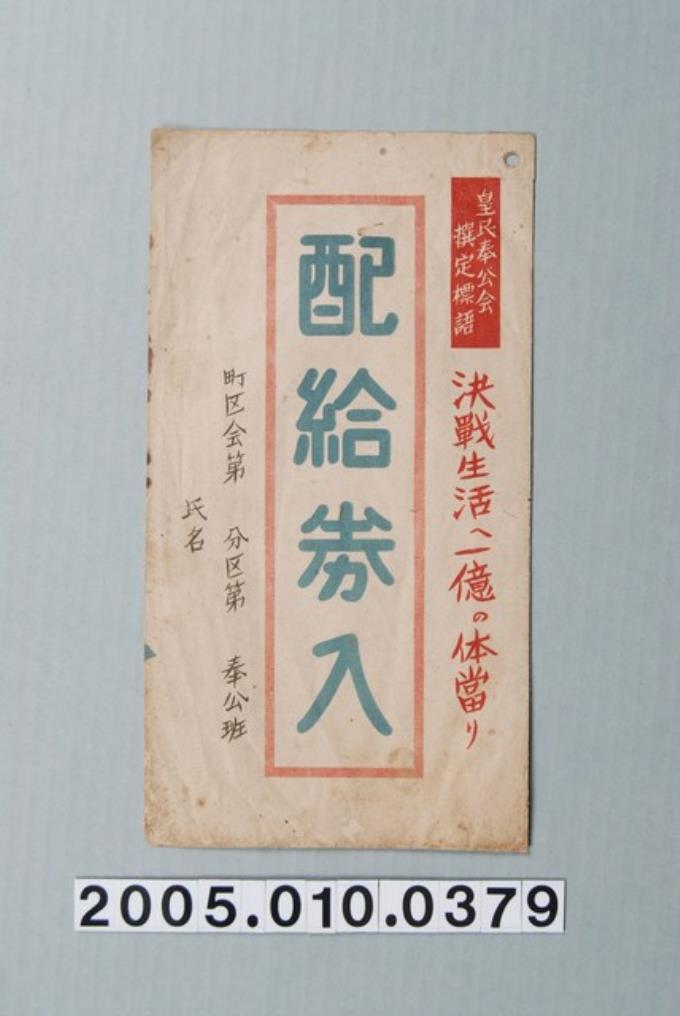 皇民奉公会
撰定標語
決戰生活へ一億の体當り
配給券入
町区会第　分区第　奉公班
氏名
2005.010.0379